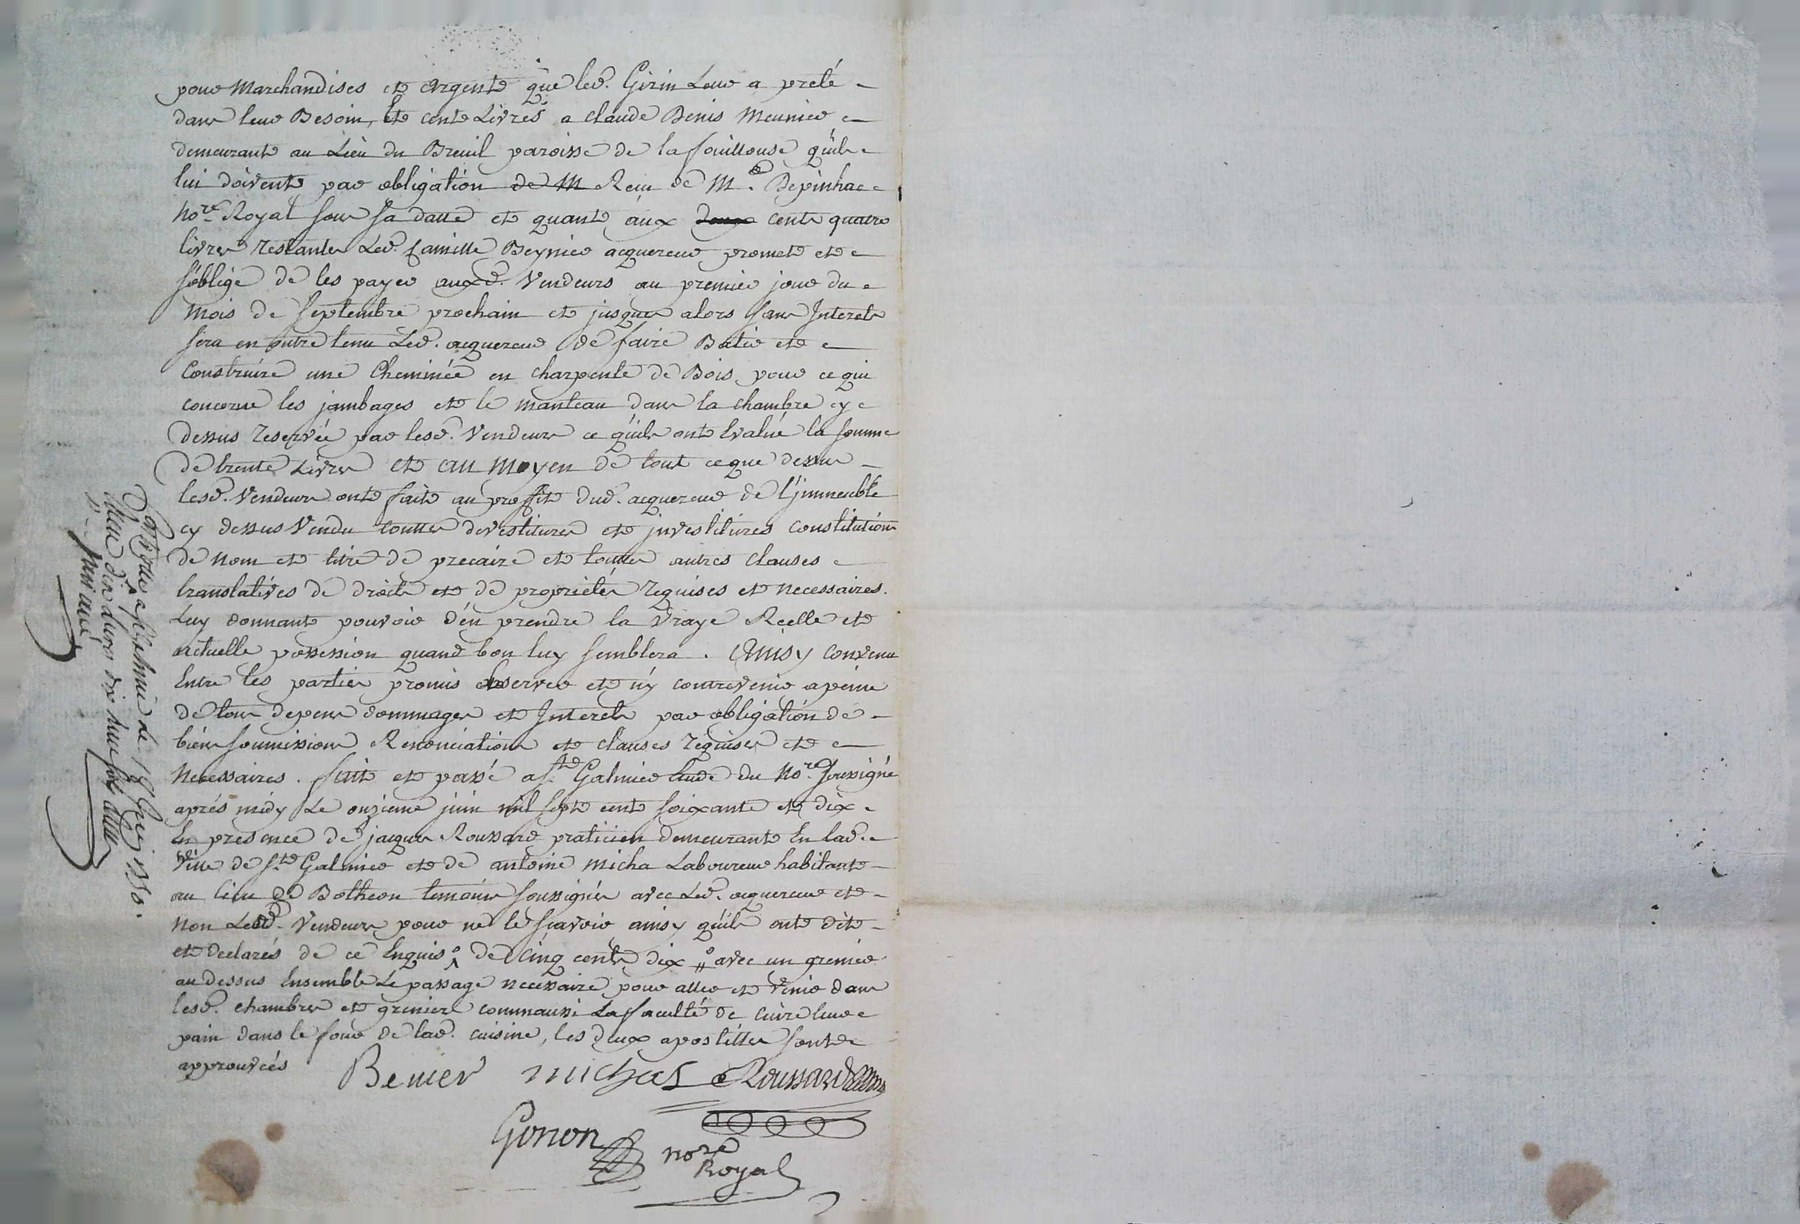 pour Marchandises et argents que led. Girin leur a preté
dans leur Besoin, et cents Livres a claude Denis Meunier
demeurante au Lieu du Breuil paroisse de la fouillouse qu'ils
lui doivents par obligation de M Reçu de Me. Depinhac
No.re Royal sous sa datte et quants aux cents quatre
livres restantes Led. camille Beynier acquereur promets et
s'oblige de les payer auxd. Vendeurs au premier jour du
Mois de septembre prochain et jusques alors sans Interets
sera en outre tenu Led. acquereur de faire Batir et
construire une Cheminée en charpente de Bois pour ce qui
concerne les jambages et le manteau dans la chambre cy
dessus reservée par lesd. Vendeurs ce qu'ils onts Evalué la somme
de trente Livres et au moyen de tout ce que dessus
lesd. Vendeurs onts faits au proffits dud. acquereur de l'jmmeuble
cy dessus Vendu touttes devestitures et jnvestitures constitutions
de nom et titre de precaire et touttes autres clauses
translatives de droits et de proprietés requises et necessaires.
Luy donnants pouvoir d'en prendre la vraye Réelle et
actuelle possession quand bon luy semblera. Ainsy convenu
Entre les parties promis observer et n'y contrevenir a peine
de tous depens dommages et Interets par obligation de
biens soumissions Renonciations et clauses requises et
Necessaires. fait et passé a St. Galmier Etude du No.re soussigné
aprés midy Le onzieme juin mil sept cents soixante et dix
En presence de jacques Roussard praticien demeurante En lad.
Ville de St. Galmier et de antoine micha Laboureur habitante
au lieu de Botheon temoins soussignés avec Led. acquereur et
non Lesd. Vendeurs pour ne le sçavoir ainsy qu'ils onts dits
et declarés de ce Enquis, de cinq cents dix, avec un grenier
au dessus Ensemble Le passage necessaire pour aller et venir dans
lesd. chambres et greniers comm'aussi La faculté de cuire leur
pain dans le four de lad. cuisine, les deux apostilles sonts
approuvées
Benier michas Roussard
Gonon no.re
Royal